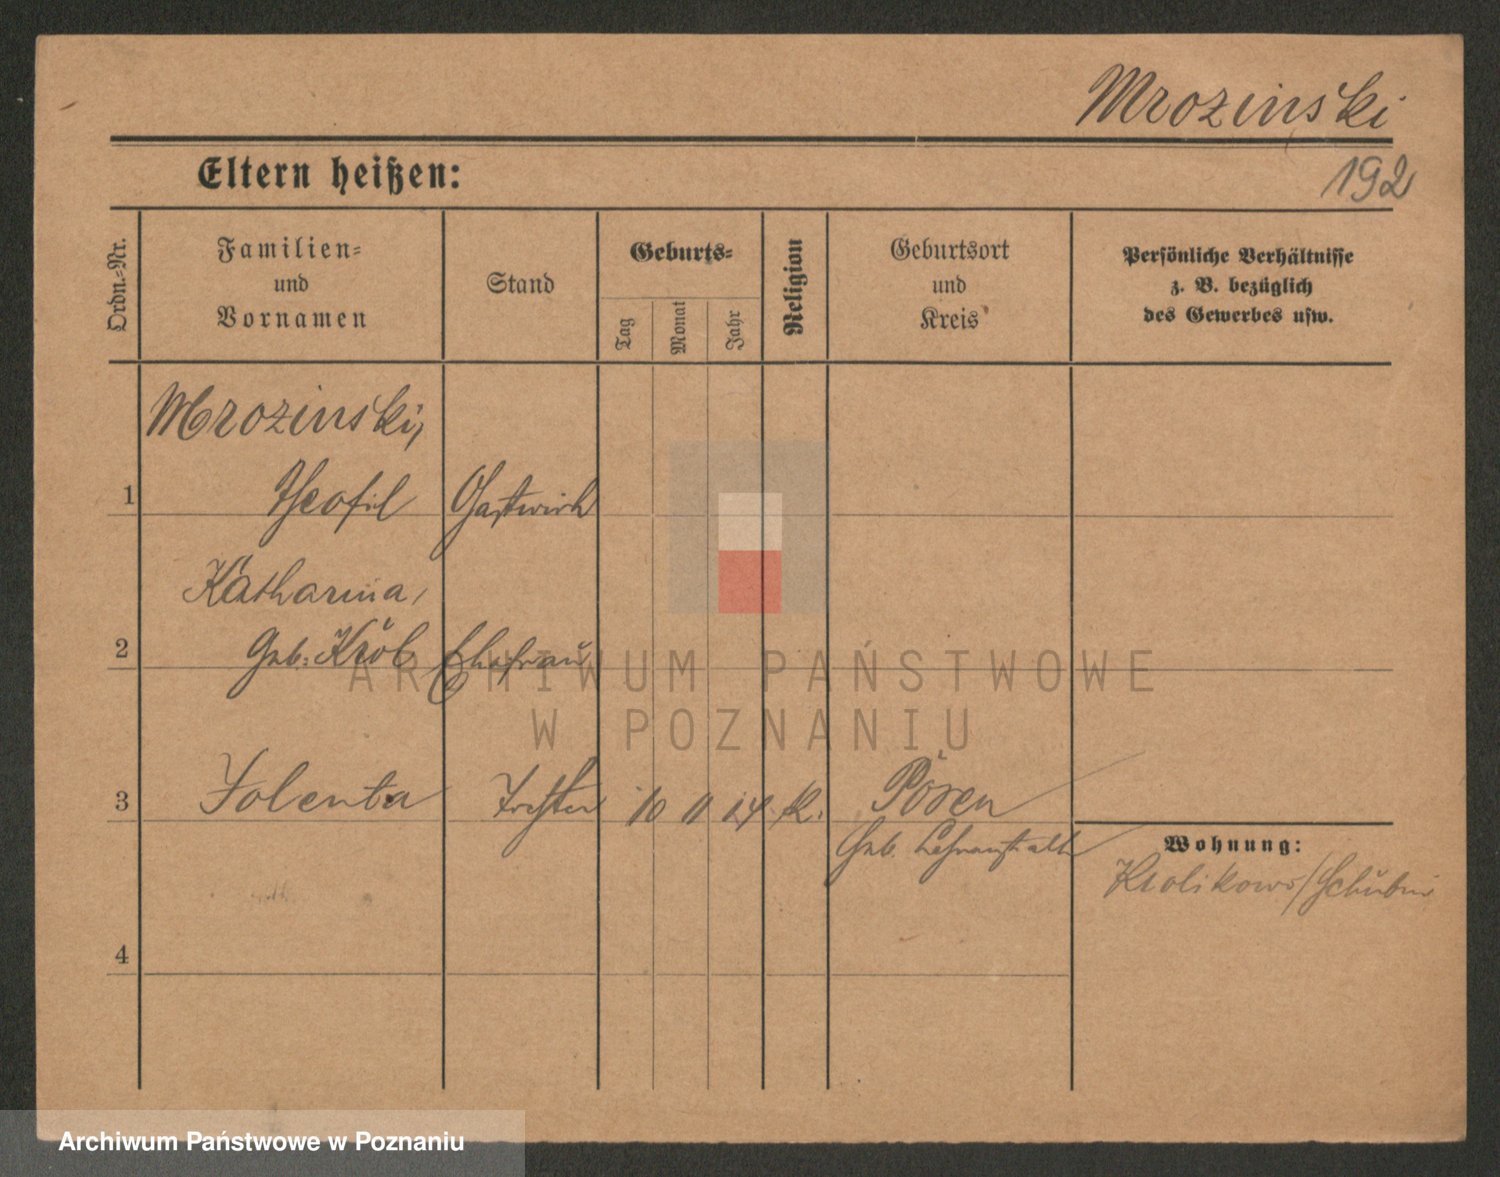 Mrozinski
192
Eltern heißen:
Ordn.-Nr.
Familien-
und
Vornamen
Stand
Geburts-
Tag
Monat
Jahr
Religion
Geburtsort
und
Kreis
Persönliche Verhältnisse
z. B. bezüglich
des Gewerbes usw.
Mrozinski,
1 Theofil Gastwirth
Katharina,
2 Geb. Król Ehefrau
3 Jolenta Tochter 10 11 14 K. Posen
Geb. Lehranstalt
Wohnung:
Krolikowo/Schubin
4
ARCHIWUM PAŃSTWOWE
W POZNANIU
Archiwum Państwowe w Poznaniu